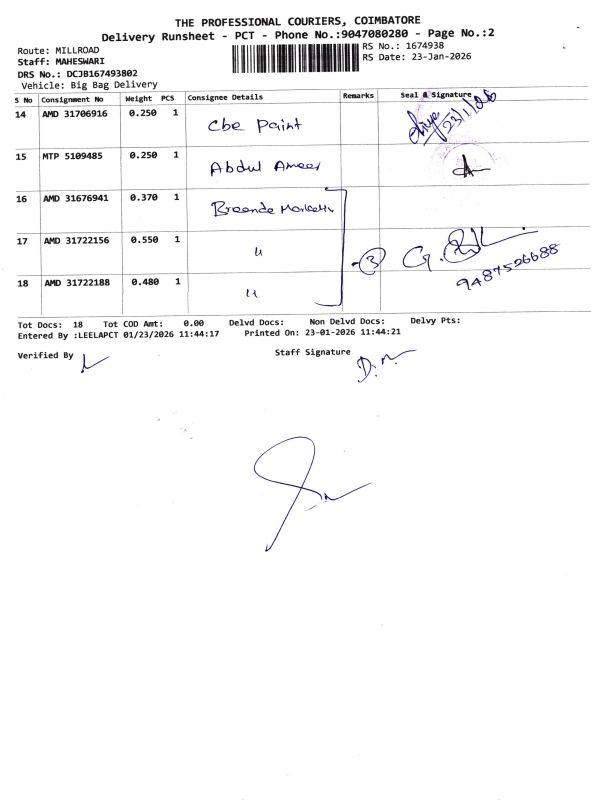 THE PROFESSIONAL COURIERS, COIMBATORE
Delivery Runsheet - PCT - Phone No.:9047080280 - Page No.:2
Route: MILLROAD
RS No.: 1674938
Staff: MAHESWARI
RS Date: 23-Jan-2026
DRS No.: DCJB167493802
Vehicle: Big Bag Delivery
S No Consignment No Weight PCS Consignee Details Remarks Seal & Signature
14 AMD 31706916 0.250 1 Cbe Paint 23/1/26
15 MTP 5109485 0.250 1 Abdul Ameer
16 AMD 31676941 0.370 1
17 AMD 31722156 0.550 1 " - 3
18 AMD 31722188 0.480 1 " 9487526688
Tot Docs: 18 Tot COD Amt: 0.00 Delvd Docs: Non Delvd Docs: Delvy Pts:
Entered By :LEELAPCT 01/23/2026 11:44:17 Printed On: 23-01-2026 11:44:21
Verified By
Staff Signature